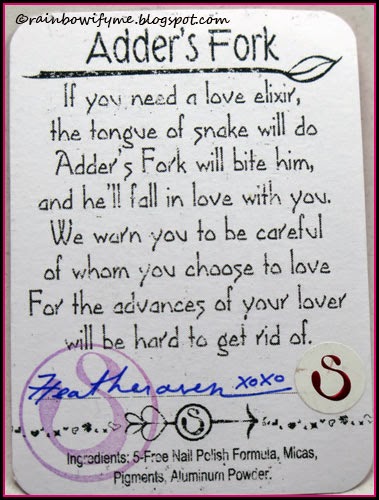 ©rainbowifyme.blogspot.com
Adder's Fork
If you need a love elixir,
the tongue of snake will do
Adder's Fork will bite him,
and he'll fall in love with you.
We warn you to be careful
of whom you choose to love
For the advances of your lover
will be hard to get rid of.
Heatheraven xoxo
S
S
S
Ingredients: 5-Free Nail Polish Formula, Micas,
Pigments, Aluminum Powder.